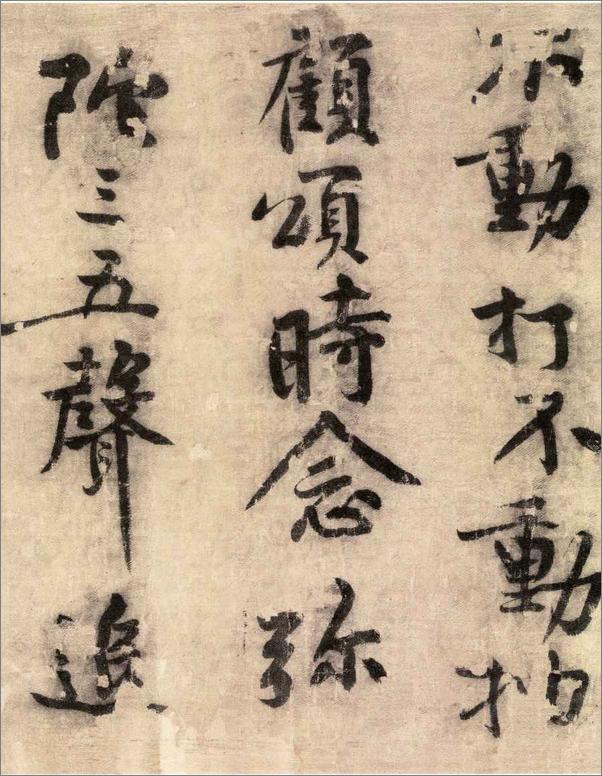 動打不動
顧頌時念弥
陀三五聲退